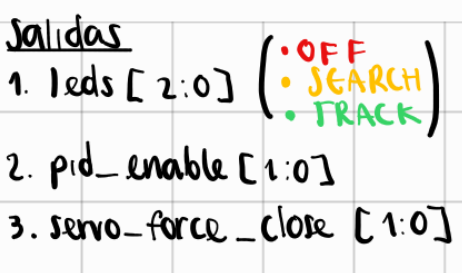 Salidas
• OFF
1. leds [2:0] • SEARCH
• TRACK
2. pid_enable [1:0]
3. servo_force_close [1:0]